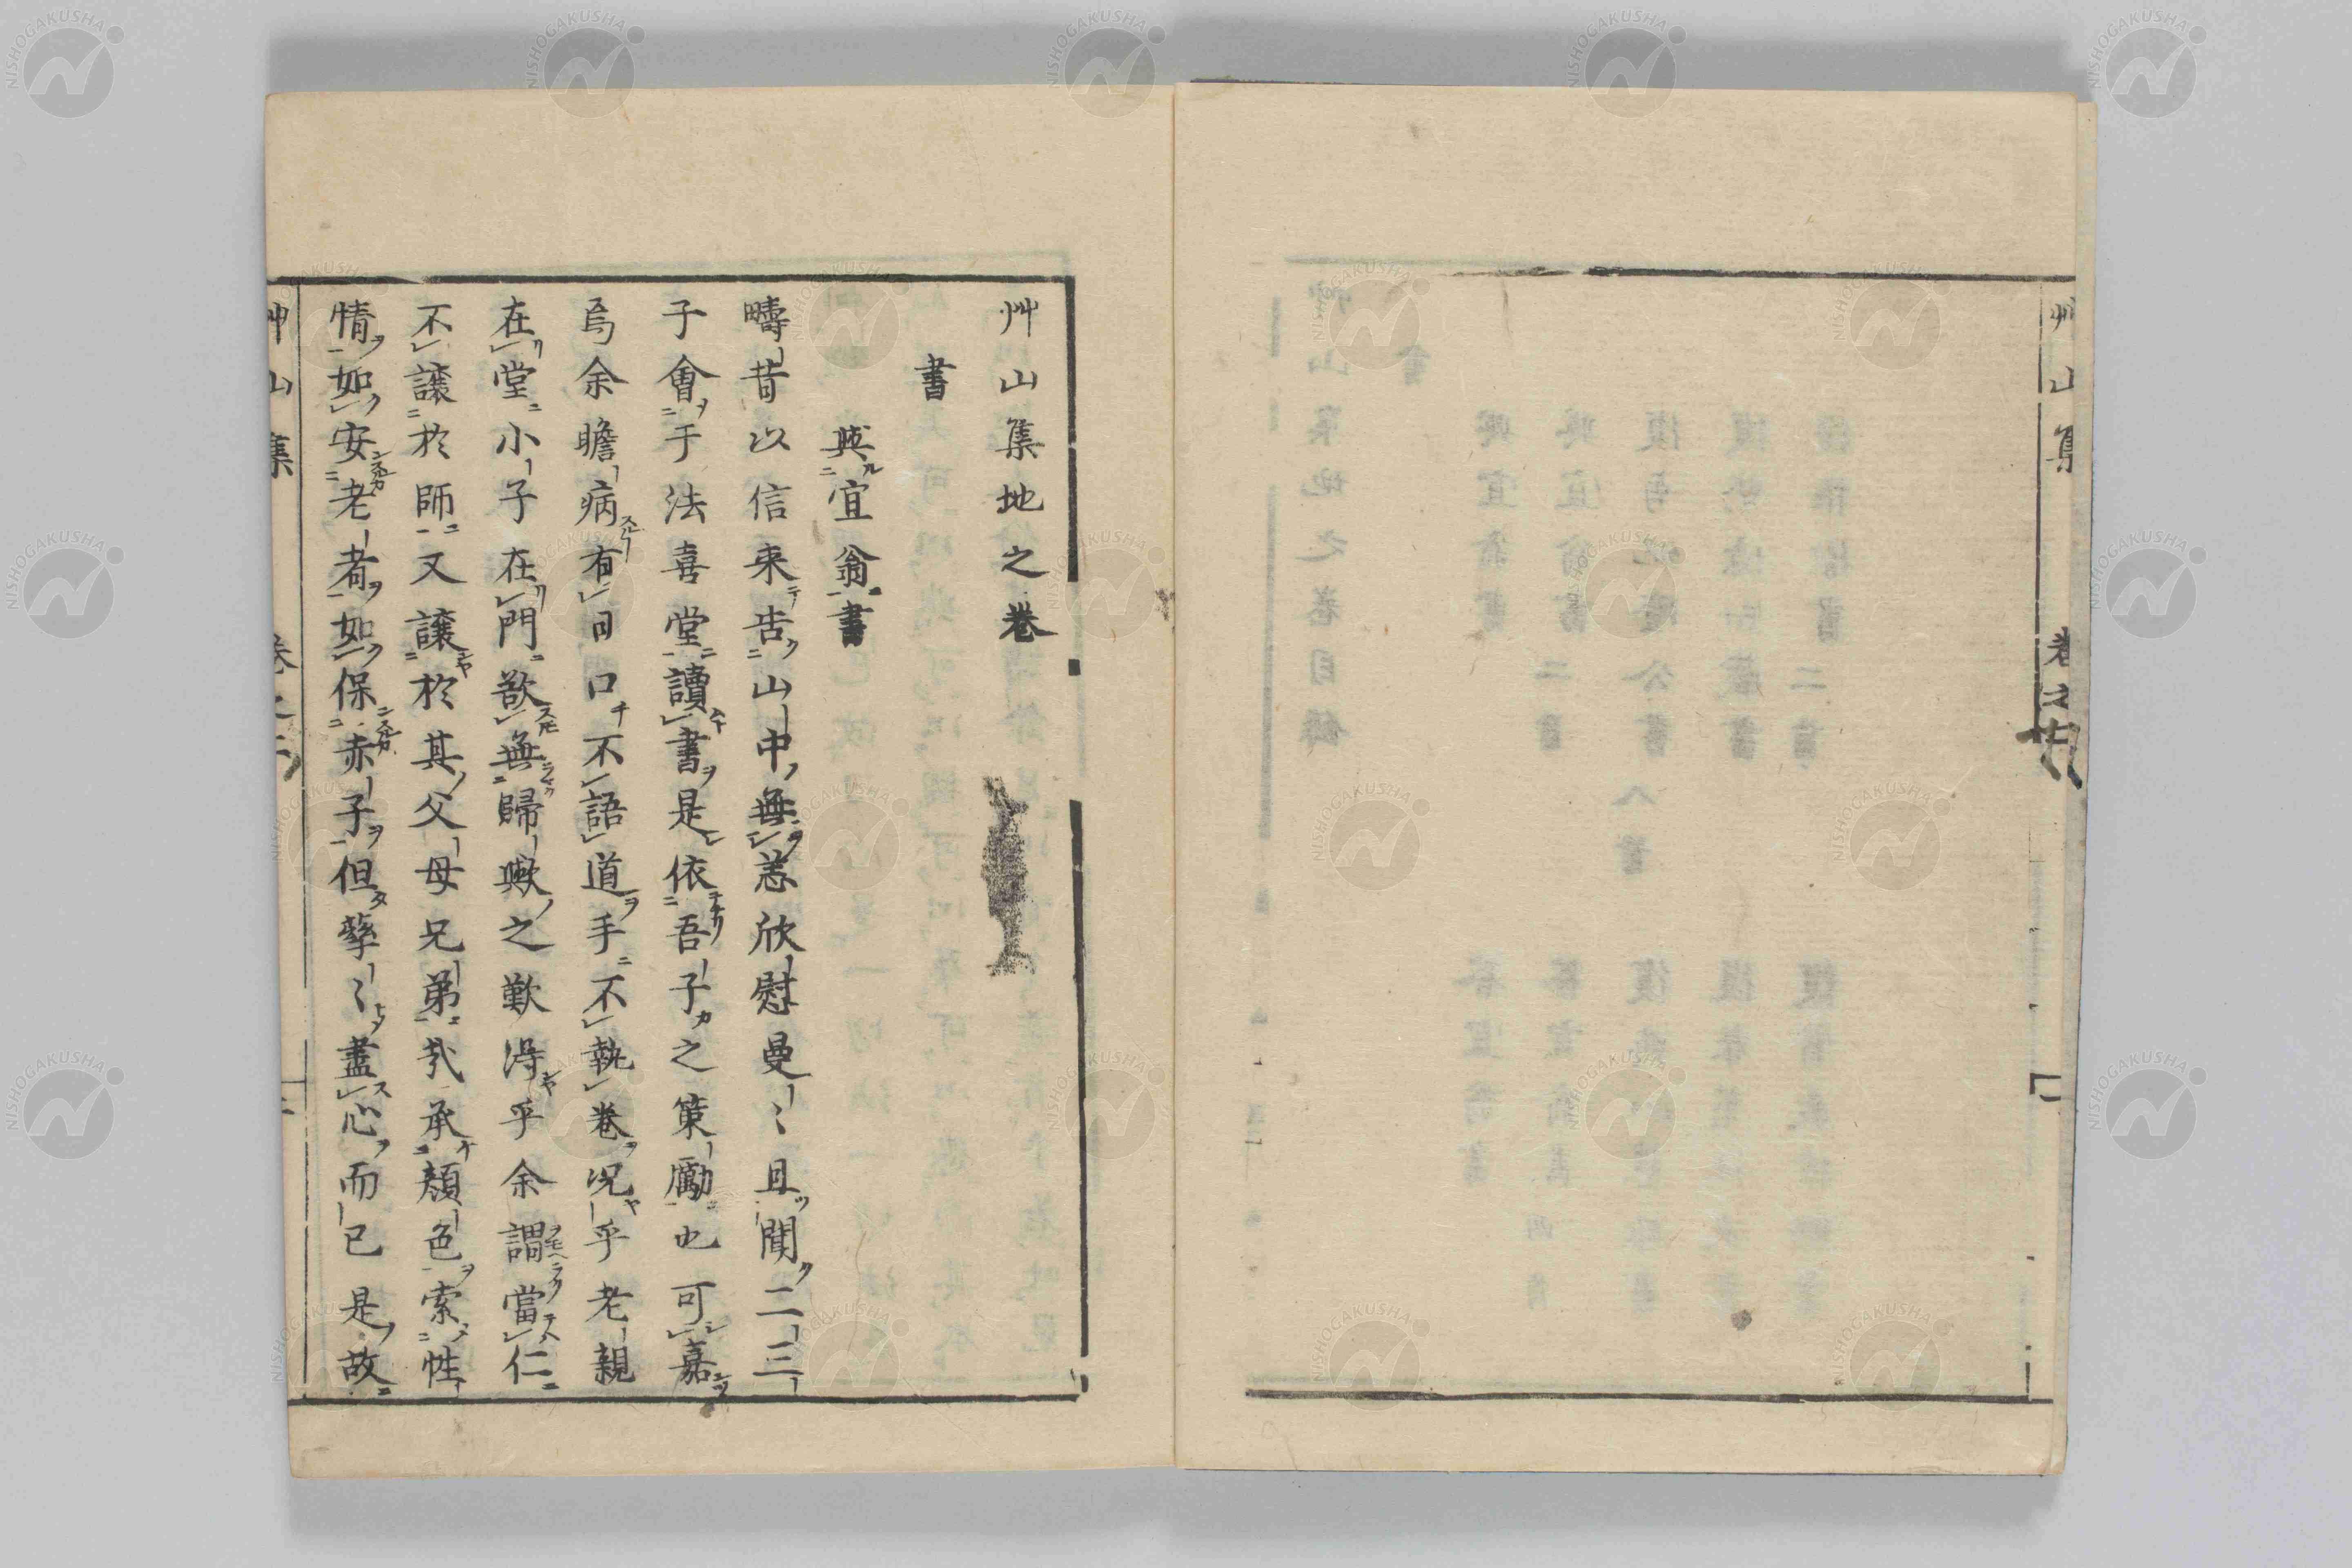 艸山集
艸山集地之卷
書
與宜翁書
疇昔以信来告山中無恙欣慰曼〻且聞二三
子會于法喜堂讀書是依吾子之策勵也可嘉
焉余瞻病有日口不語道手不執卷況乎老親
在堂小子在門欲無歸歟之歎得乎余謂當仁
不讓於師又讓於其父母兄弟哉承顏色索性
情如安老者如保赤子但孳〻盡心而已是故
艸山集
NISHOGAKUSHA